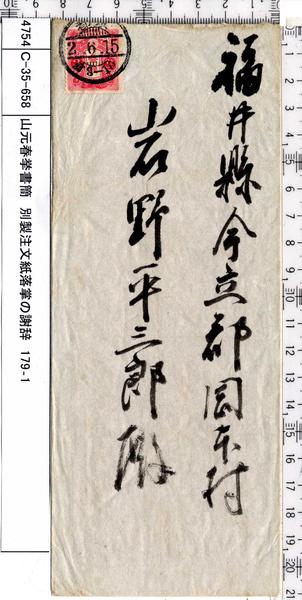 福井縣今立郡岡本村
岩野平三郎殿
2.6.15
4754 C-35-658 山元春挙書簡 別製注文紙落掌の謝辞 179-1